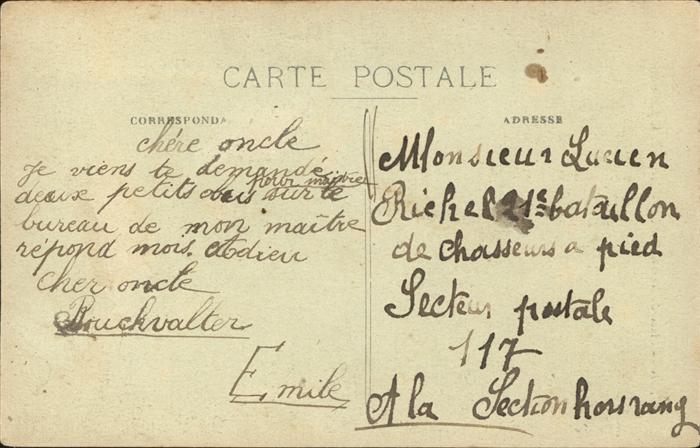 CARTE POSTALE
CORRESPONDA
chére oncle
je viens te demandé
deux petits
pour
sur le
bureau de mon maître
répond mois. Adieu
cher oncle
Bouckvalter
Emile
ADRESSE
Monsieur Lucien
Richel 21e bataillon
de chasseurs a pied
Secteur postale
117
A la Section hors rang